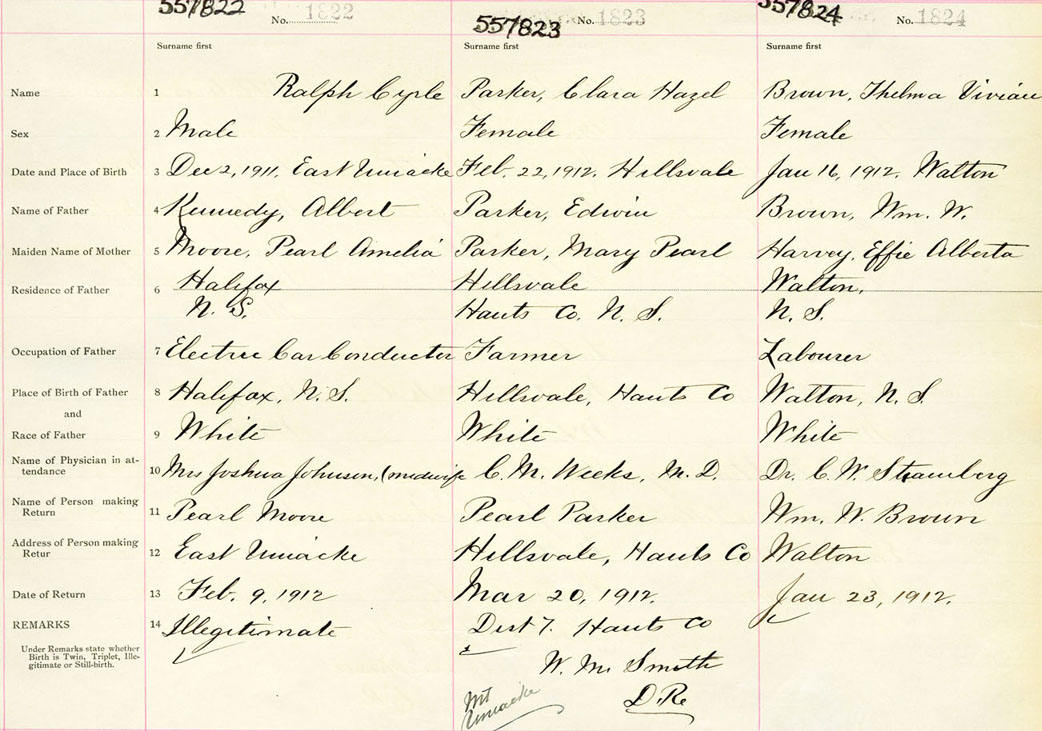 557822 No. 1822 557823 No. 1823 557824 No. 1824
Surname first Surname first Surname first
Name 1 Ralph Cyrle Parker, Clara Hazel Brown, Thelma Vivian
Sex 2 Male Female Female
Date and Place of Birth 3 Dec 2, 1911. East Uniacke Feb. 22, 1912. Hillsvale Jan 16, 1912. Walton
Name of Father 4 Kennedy, Albert Parker, Edwin Brown, Wm. W.
Maiden Name of Mother 5 Moore, Pearl Amelia Parker, Mary Pearl Harvey, Effie Alberta
Residence of Father 6 Halifax Hillsvale Walton,
N. S. Hants Co. N. S. N. S.
Occupation of Father 7 Electric Car Conductor Farmer Labourer
Place of Birth of Father 8 Halifax, N. S. Hillsvale, Hants Co Walton, N. S
and
Race of Father 9 White White White
Name of Physician in at-
tendance 10 Mrs Joshua Johnson, (midwife C. M. Weeks, M. D. Dr. C. W. Stramberg
Name of Person making
Return 11 Pearl Moore Pearl Parker Wm. W. Brown
Address of Person making
Retur 12 East Uniacke Hillsvale, Hants Co Walton
Date of Return 13 Feb. 9, 1912 Mar 20, 1912. Jan 23, 1912.
REMARKS 14 Illegitimate Dist 7. Hants Co
Under Remarks state whether
Birth is Twin, Triplet, Ille-
gitimate or Still-birth.
W. M. Smith
Mt D. Re
Uniacke